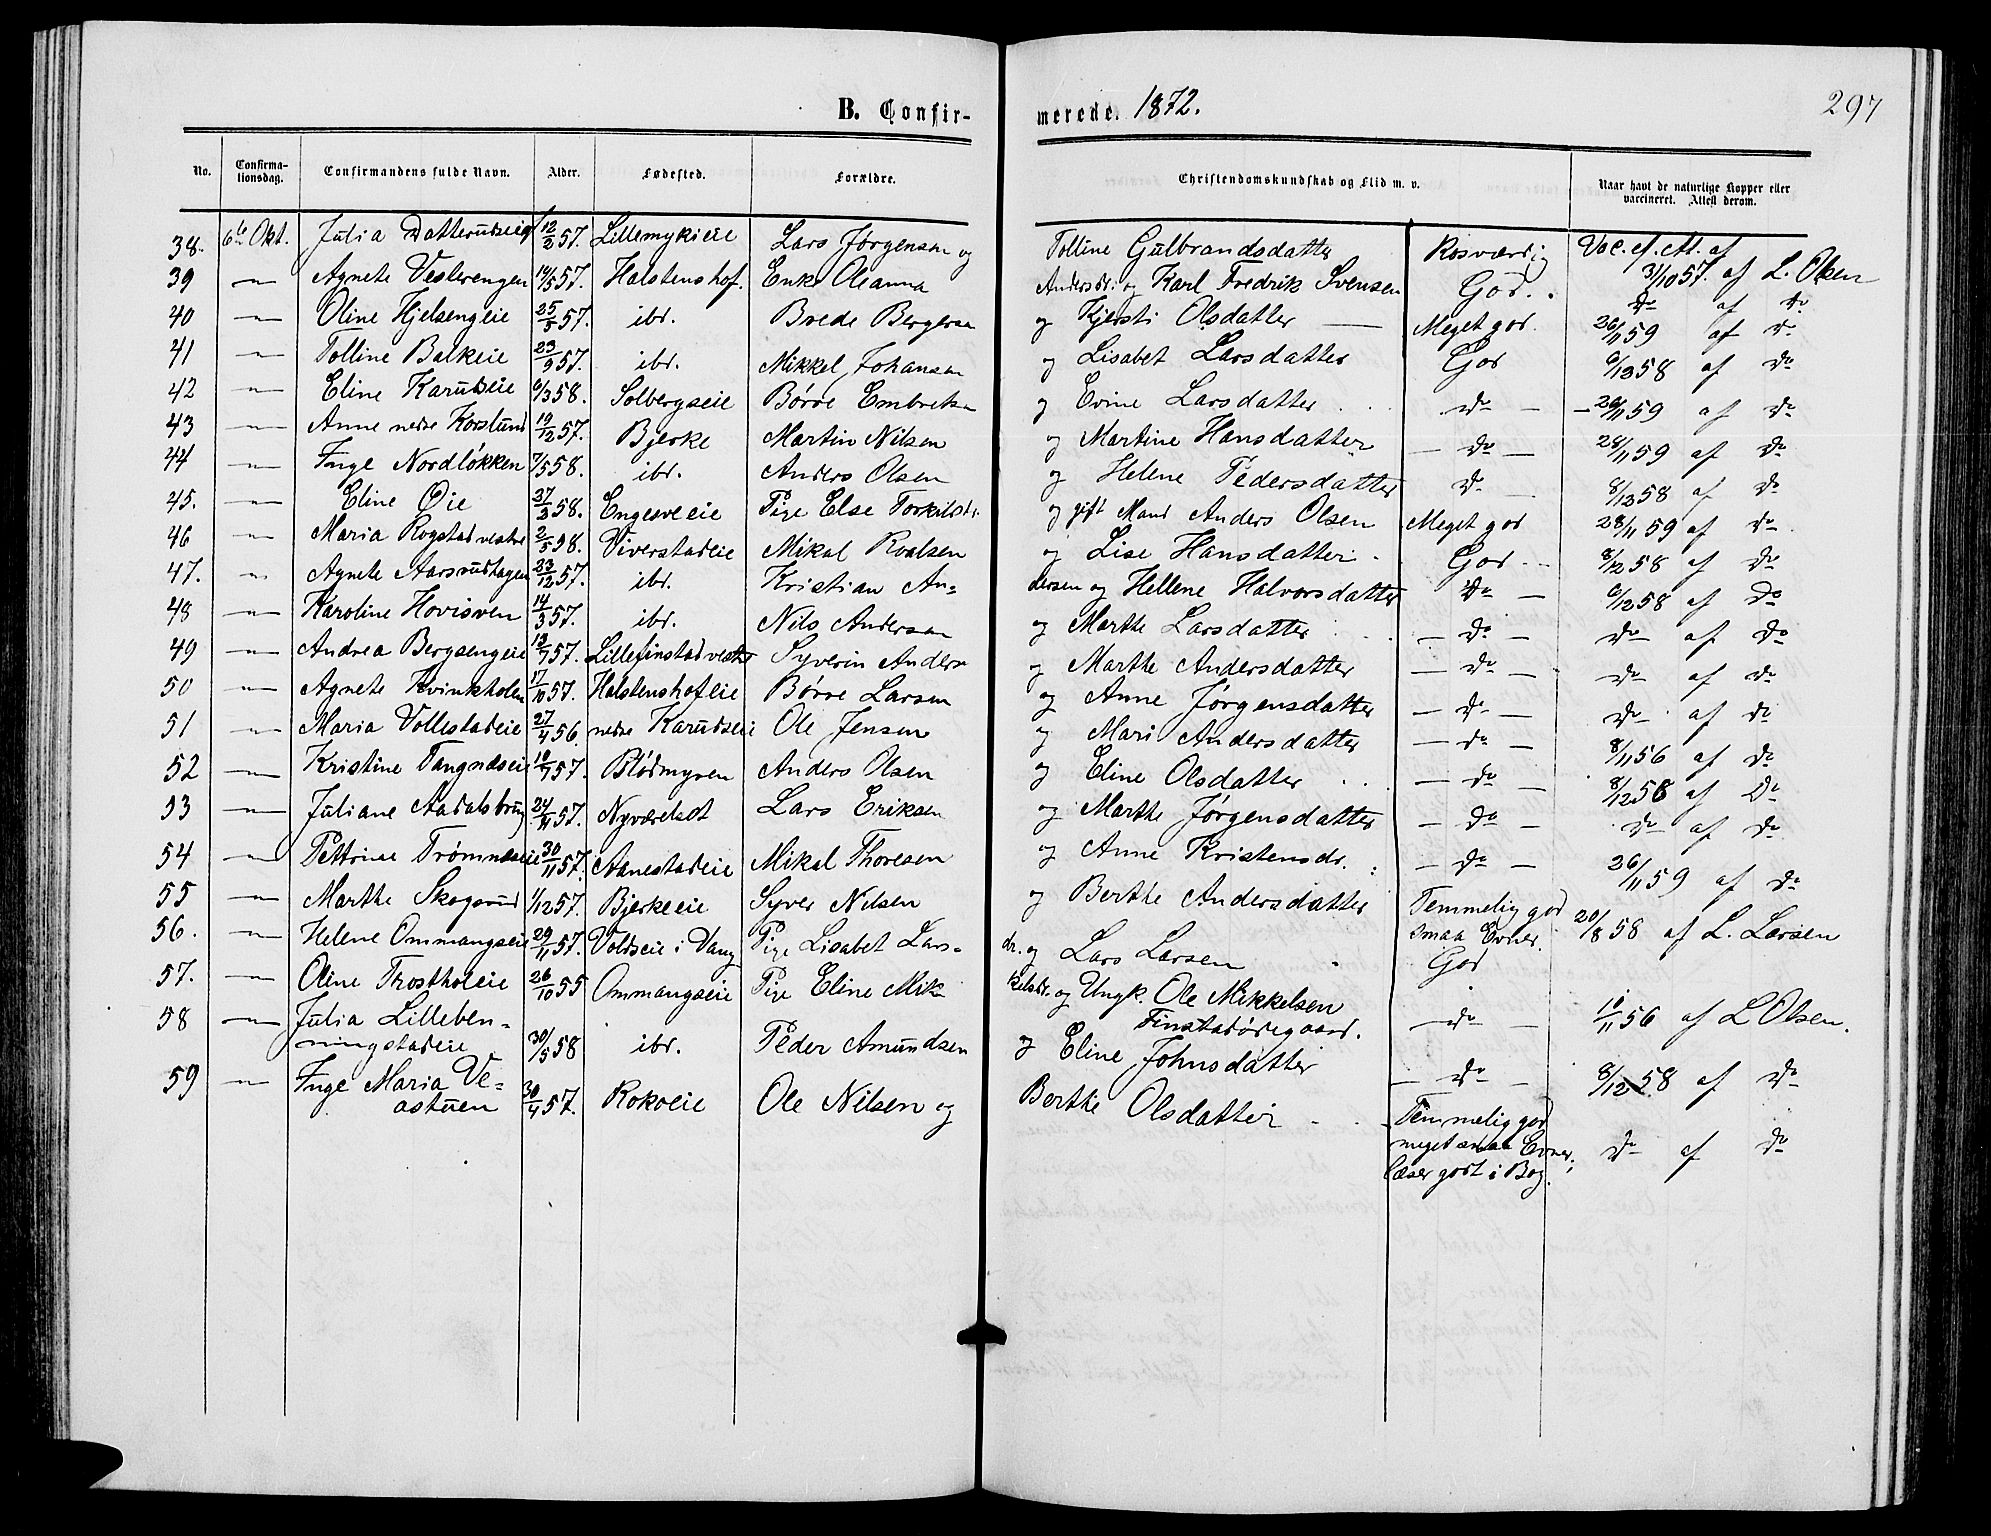 B. Confir-
merede. 1872.
297
No. Confirma-tionsdag. Confirmandens fulde Navn. Alder. Fødested. Forældre. Christendomskundskab og Flid m. v. Naar havt de naturlige Kopper eller vaccineret. Attest derom.
38. 6te Okt. Julia 12/2 57. Lillemykieie Lars Jørgensen og Tolline Gulbrandsdatter Rosværdig Vac. ef. Att. af
39 — Agnete Vesterengen 14/5 57. Halstenshof. Enke Oleanna Andersdr. og Karl Fredrik Svensen God. 31/10 57. af L. Olsen
40 — Oline Hjelsengeie 25/5 57. ibd. Brede Bergersen og Kjersti Olsdatter — Meget god. Do af Do
41 — Tolline Balkeie 23/9 57. ibd. Mikkel Johansen og Lisabet Larsdatter God 26/11 59 af Do
42 — Eline Karudseie 6/3 58. Solbergseie Børre Embretsen og Evine Larsdatter Do — 6/12 58 af Do
43 — Anne nedre Korslund 19/12 57. Bjerke Martin Nilsen og Martine Hansdatter — Do — 26/11 59 af Do
44 — Inge Nordløkken 7/5 58. ibd. Anders Olsen og Helene Pedersdatter Do — 28/11 59 af Do
45. — Eline Øie 58. Engesveeie Pige Else Torkildsdr. og gift Mand Anders Olsen Meget god 8/12 58 af Do
46 — Maria Rogstad vestre 2/5 58. Viverstadeie Mikal Roalsen og Lise Hansdatter God 28/11 59 af Do
47. — Agnete Aarsrudhagen 23/12 57. ibd. Kristian An=dersen og Hellene Halvorsdatter Do — 8/12 58 af Do
48 — Karoline Hovisven 14/3 57. ibd. Nils Andersen og Marthe Larsdatter — Do — 6/12 58 af Do
49 — Andrea Bergsengeie 57. Lillefinstad vestre Syverin Anders og Marthe Andersdatter — Do — Do af Do
50 — Agnete Kvinkholen 17/10 57. Halstenshofeie Børre Larsen og Anne Jørgensdatter — Do — Do af Do
51 — Maria Vollestadeie 27/4 56. nedre Karudseie Ole Jensen og Mari Andersdatter — Do — Do af Do
52 — Kristine Tangnæseie 57. Blødmyren Anders Olsen og Eline Olsdatter — Do — 8/11 56 af Do
53 — Juliane Aadalsbrug 24/11 57. Nyværelset Lars Eriksen og Marthe Jørgensdatter — Do — 8/12 58 af Do
54 — Pettrine Trømnæseie 30/11 57. Aanestadeie Mikal Thoresen og Anne Kristensdr. — Do — Do af Do
55 — Marthe Skogsrud 1/12 57. Bjerkeeie Syver Nilsen og Berthe Andersdatter Temmelig god smaa Evner. 26/11 59 af Do
56. — Helene Ommangseie 29/11 57. Voldseie i Vang Pige Lisabet Lars=dr. og Lars Larsen God 20/8 58 af L. Larsen
57. — Oline Trostholeie 26/10 55 Ommangseie Pige Eline Mik=kelsdr. og Ungk. Ole Mikkelsen
Finstadødegaard. — Do — 10/11 56 af L Olsen.
58 — Julia Lilleben=
ningstadeie 30/5 58 ibd. Peder Amundsen og Eline Johnsdatter — Do — 8/12 58 af Do
59 — Inge Maria Ve=
astuen 30/4 57. Rokoeie Ole Nilsen og Berthe Olsdatter Temmelig god
meget smaa Evner;
læser godt i Bog. Do af Do